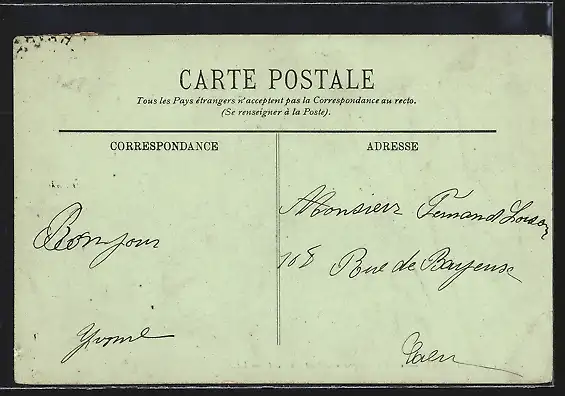 CARTE POSTALE
Tous les Pays étrangers n'acceptent pas la Correspondance au recto.
(Se renseigner à la Poste).
CORRESPONDANCE
ADRESSE
Bonjour
Yvonne
Monsieur Fernand
108 Rue de Bayeux
Caen